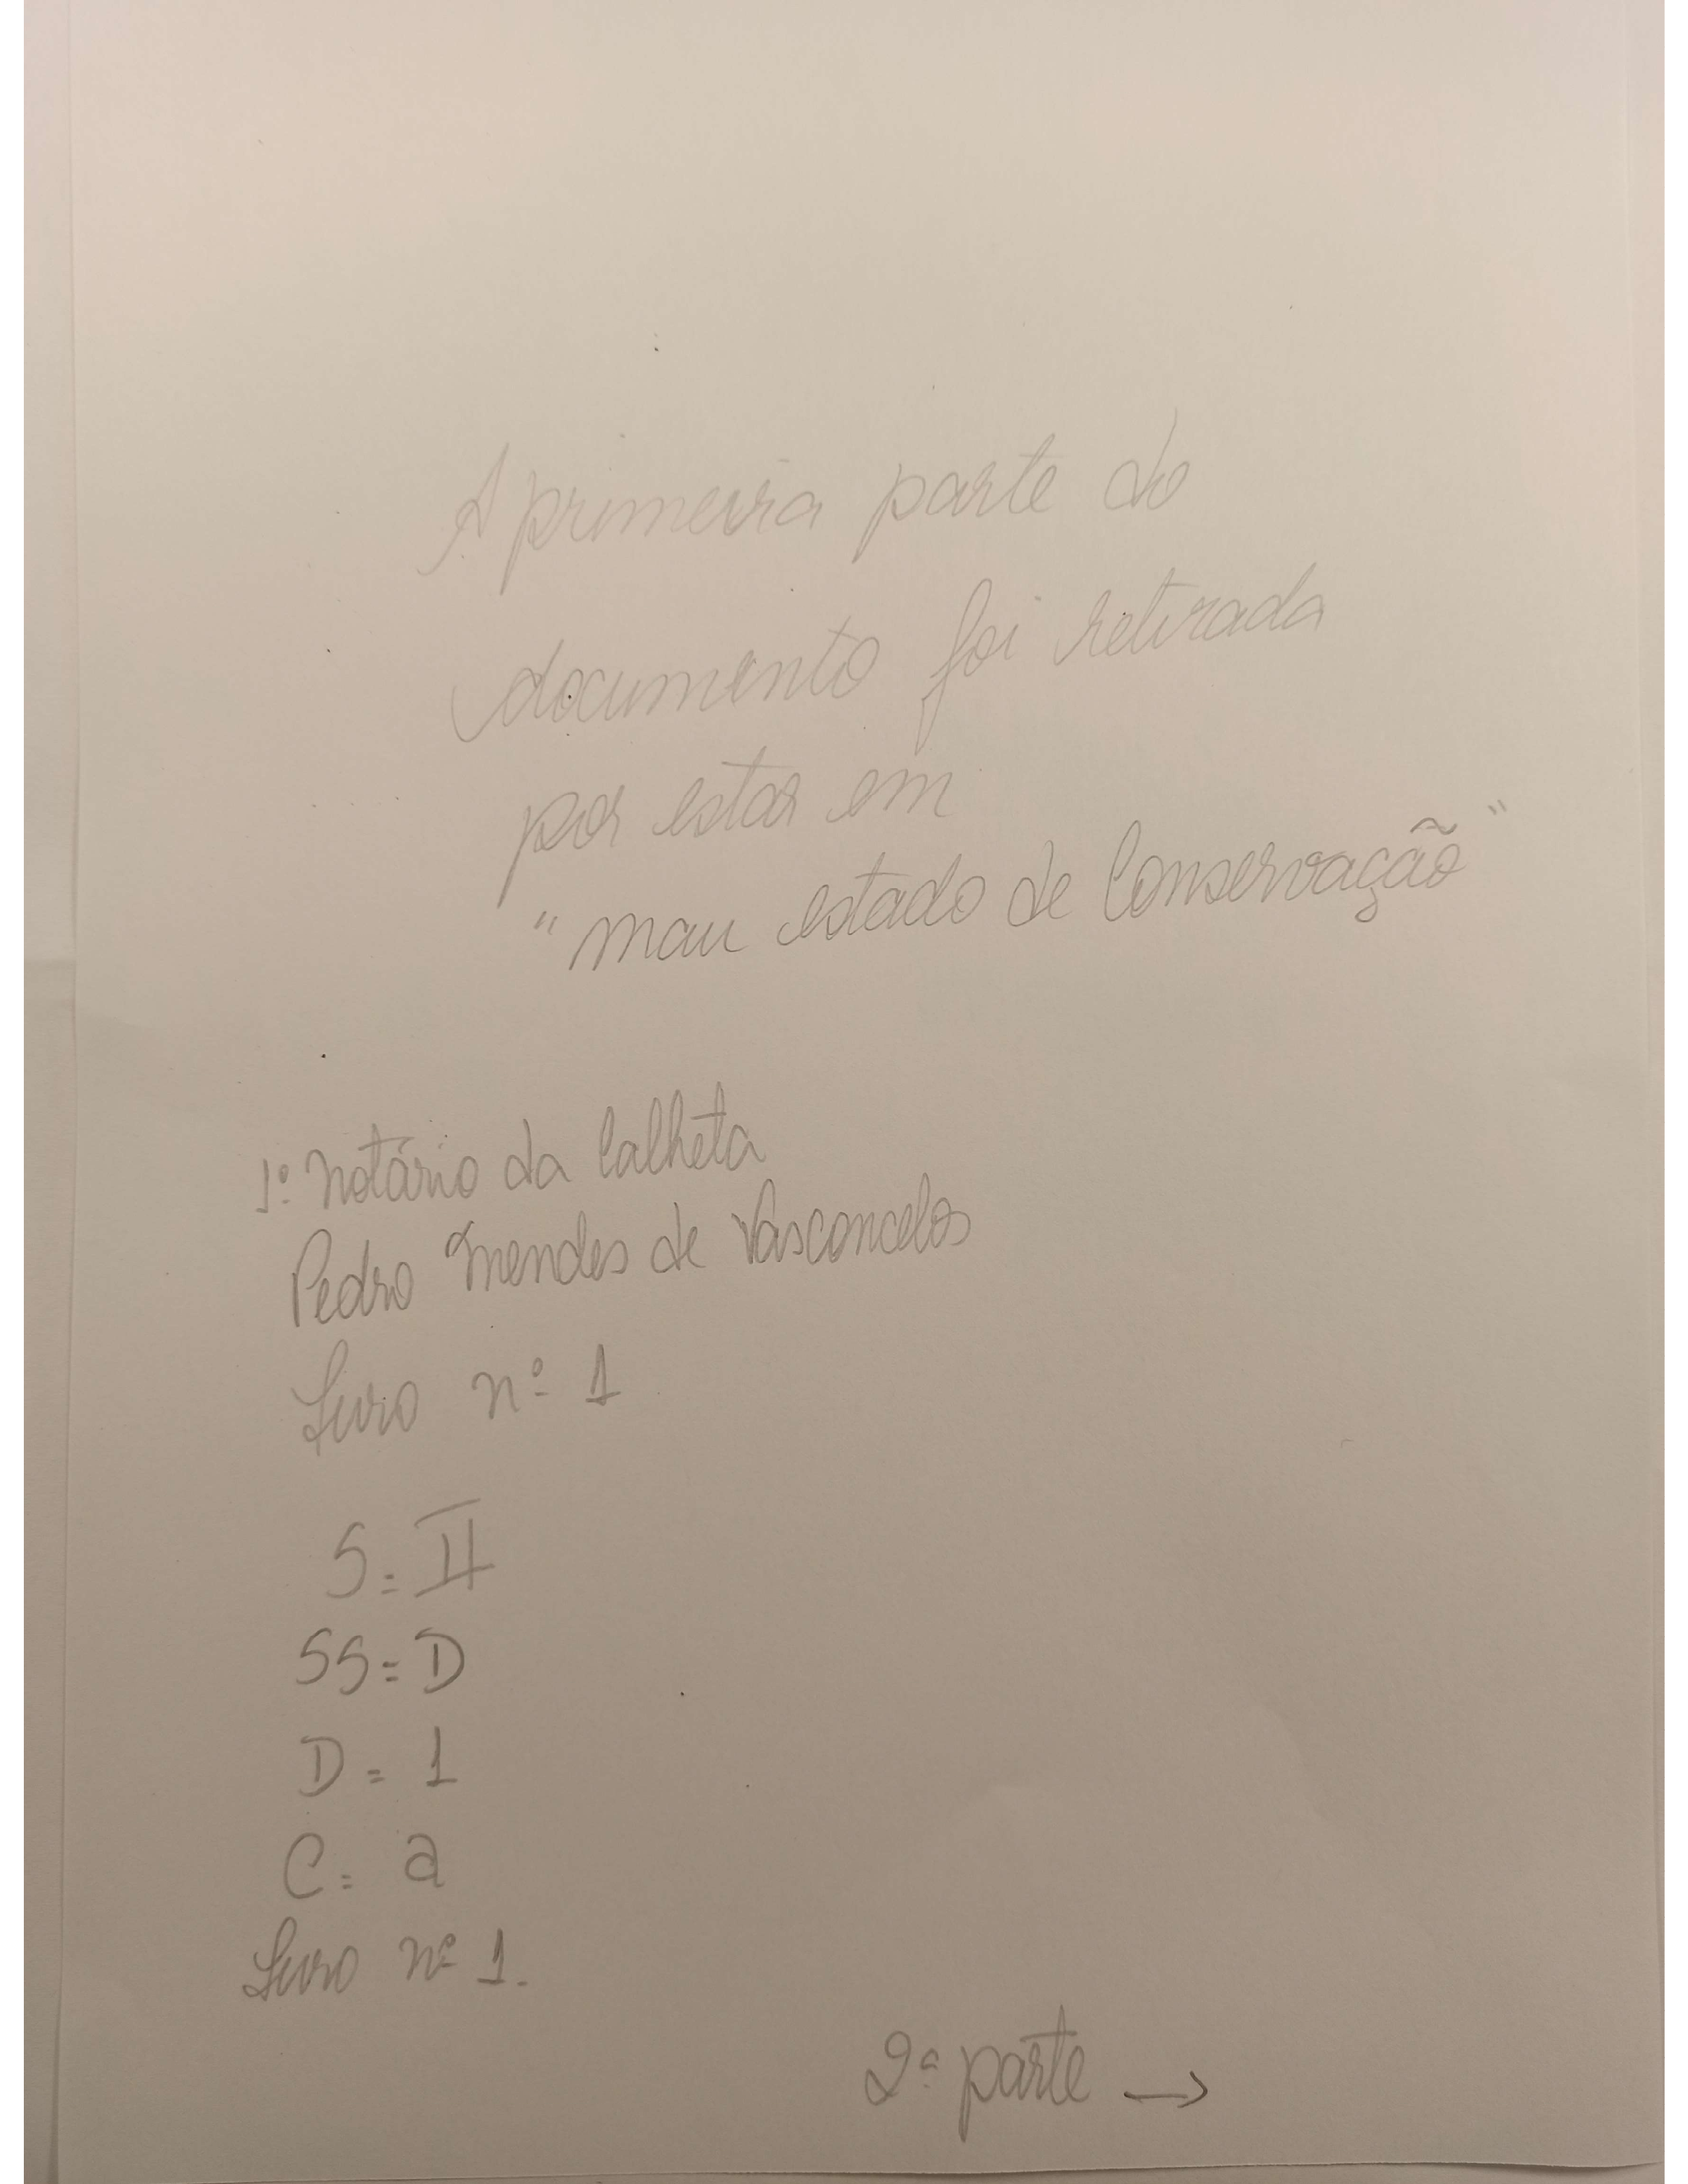 A primeira parte do
documento foi retirada
por estar em
"mau estado de Conservação"
1º notário da Calheta
Pedro Mendes de Vasconcelos
Livro nº 1
S = II
SS = D
D = 1
C = a
Livro nº 1.
2ª parte →